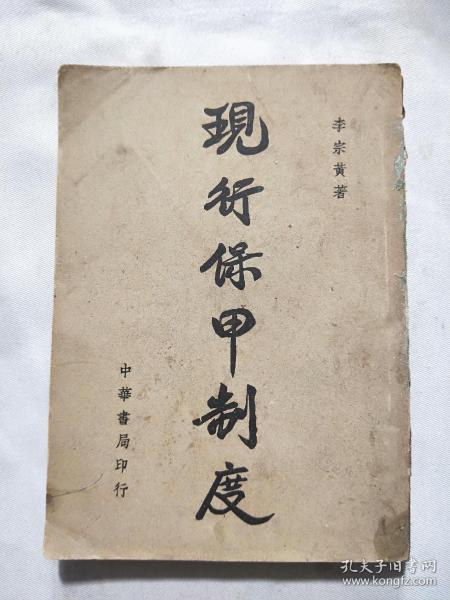 李宗黄著
現行保甲制度
中華書局印行
孔夫子旧书网
www.kongfz.com